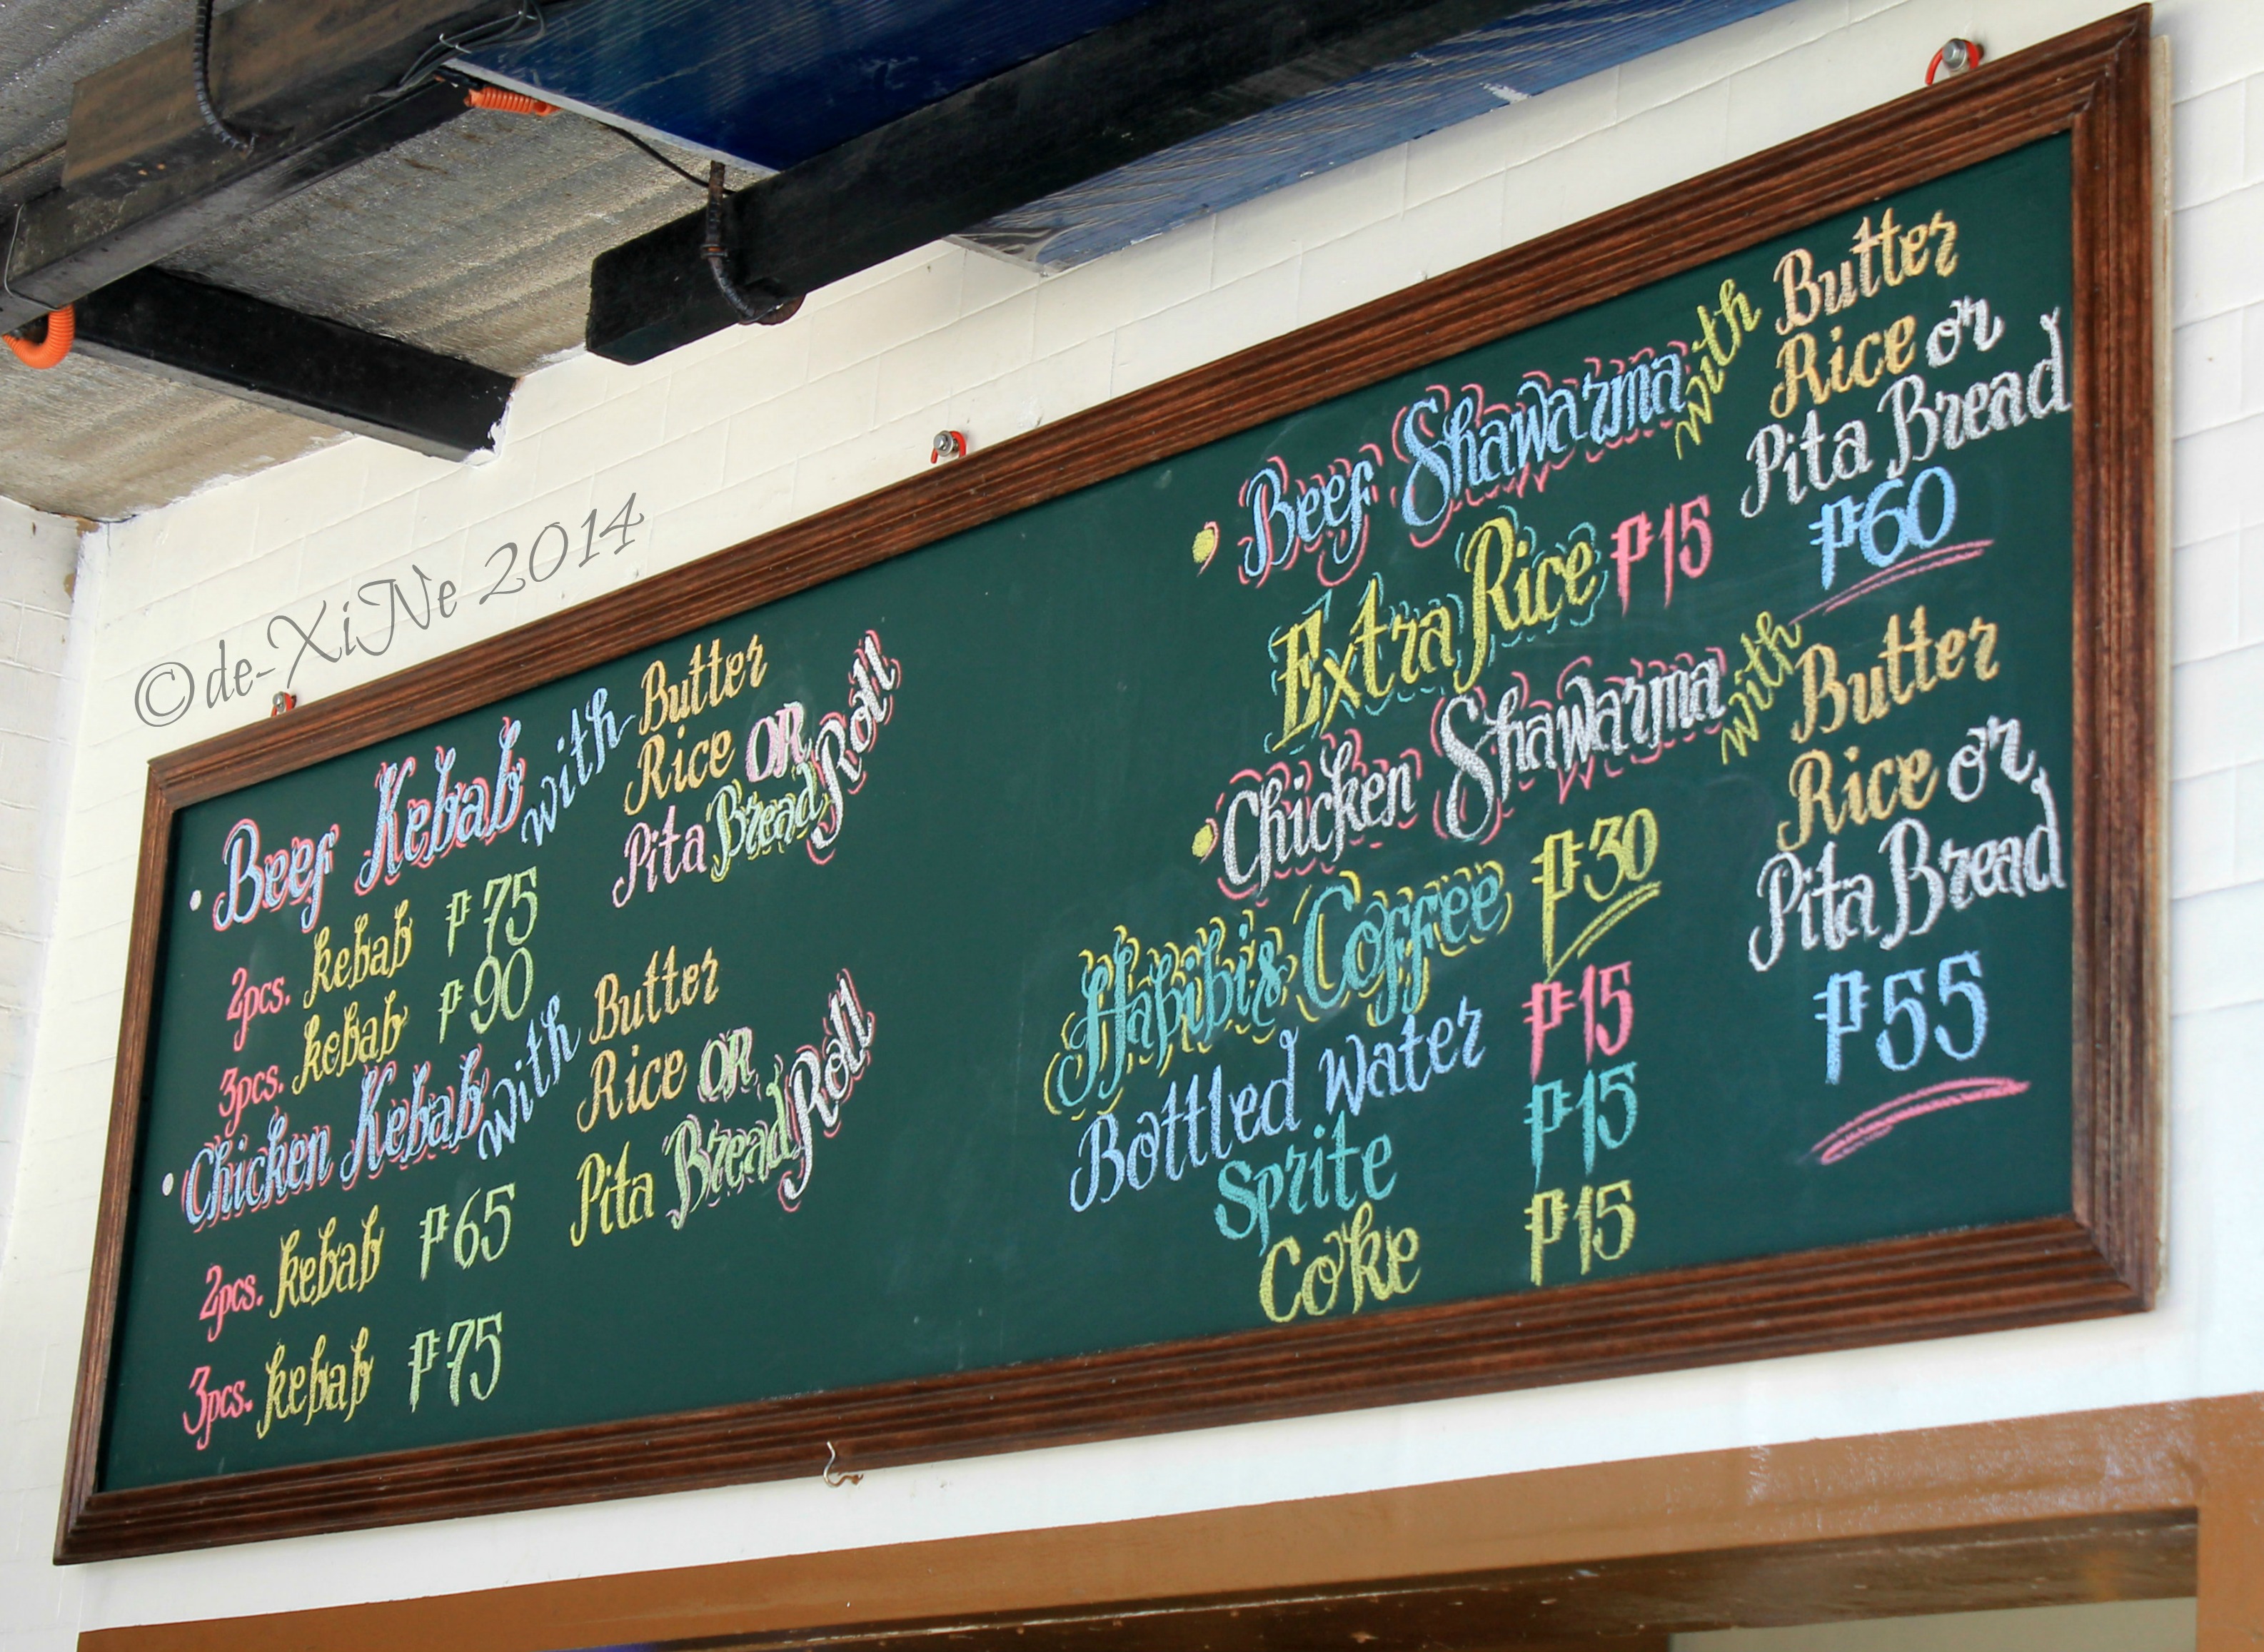 ©de-XiNe 2014
• Beef Kebab with Butter
Rice OR
Pita Bread Roll
2pcs. kebab ₱75
3pcs. kebab ₱90
• Chicken Kebab with Butter
Rice OR
Pita Bread Roll
2pcs. kebab ₱65
3pcs. kebab ₱75
• Beef Shawarma with Butter
Rice or
Pita Bread
₱60
Extra Rice ₱15
• Chicken Shawarma with Butter
Rice or
Pita Bread
₱55
Habibis Coffee ₱30
Bottled water ₱15
Sprite ₱15
Coke ₱15